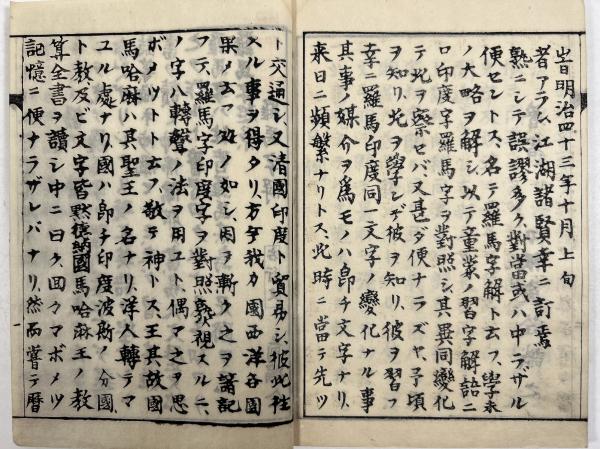 記憶ニ便ナラザレバナリ、然而嘗テ暦
算全書ヲ讀シ中ニ曰ク、回々マボメツ
ト教及ビ文字皆黙德納國馬哈麻王ノ教
ユル處ナリ、國ハ即チ印度波斯ノ分國、
馬哈麻ハ其聖王ノ名ナリ、洋人轉テマ
ボメットト云フ、敬テ神トス、王其故國
ノ字ハ轉聲ノ法ヲ用ユト、偶マ之ヲ思
フテ、羅馬字印度字ヲ對照熟視スルニ、
果メ云フ処ノ如シ、因テ漸ク之ヲ諳記
スル事ヲ得タリ、方今我カ國西洋各國
ト交通シ、又清國印度ト貿易シ、彼此往
来日ニ頻繁ナリトス、此時ニ當テ先ツ
其事ノ媒介ヲ爲モノハ即チ文字ナリ、
幸ニ羅馬印度同一文字ノ變化ナル事
ヲ知リ、此ヲ學シデ彼ヲ知リ、彼ヲ習フ
テ此ヲ察セバ、又甚ダ便ナラズヤ、予頃
ロ印度字羅馬字ヲ對照シ、其異同變化
ノ大略ヲ解シ、以テ童蒙ノ習字解語ニ
便セントス、名テ羅馬字解ト云フ、學未
熟ニシテ誤謬多ク、對當或ハ中ラザル
者アラム、江湖諸賢幸ニ訂焉
旹明治四十三年十月上旬